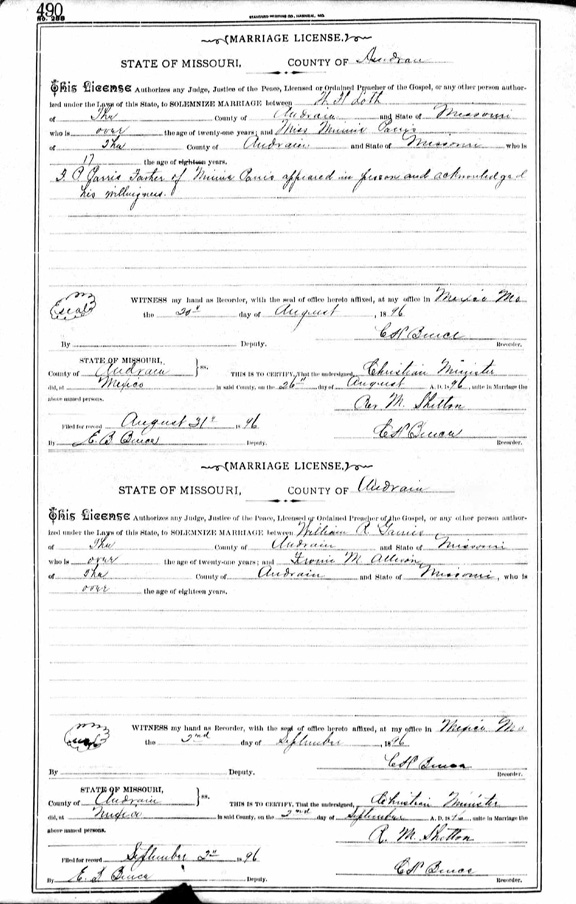 490
No. 288
STANDARD PRINTING CO., HANNIBAL, MO.
(MARRIAGE LICENSE.)
STATE OF MISSOURI, COUNTY OF Audrain
This License Authorizes any Judge, Justice of the Peace, Licensed or Ordained Preacher of the Gospel, or any other person author-
ized under the Laws of this State, to SOLEMNIZE MARRIAGE between
of The County of Audrain and State of Missouri
who is over the age of twenty-one years; and Miss Minnie Parris
of The County of Audrain and State of Missouri who is
17 the age of eighteen years.
Parris Father of Minnie Parris appeared in person and acknowledged
his willingness.
WITNESS my hand as Recorder, with the seal of office hereto affixed, at my office in Mexico Mo
(seal) the day of August 1896
By Deputy. Recorder.
STATE OF MISSOURI,
County of Audrain ss. THIS IS TO CERTIFY, That the undersigned, Christian Minister
did, at Mexico in said County, on the 26th day of August A. D. 1896, unite in Marriage the
above named persons. Rev. M. Shelton
Filed for record August 31st 1896
By Deputy. Recorder.
(MARRIAGE LICENSE.)
STATE OF MISSOURI, COUNTY OF Audrain
This License Authorizes any Judge, Justice of the Peace, Licensed or Ordained Preacher of the Gospel, or any other person author-
ized under the Laws of this State, to SOLEMNIZE MARRIAGE between William R.
of The County of Audrain and State of Missouri
who is over the age of twenty-one years; and M. Allison
of The County of Audrain and State of Missouri, who is
over the age of eighteen years.
WITNESS my hand as Recorder, with the seal of office hereto affixed, at my office in Mexico Mo
the 2nd day of September 1896
By Deputy. Recorder.
STATE OF MISSOURI,
County of Audrain ss. THIS IS TO CERTIFY, That the undersigned, Christian Minister
did, at Mexico in said County, on the 2nd day of September A. D. unite in Marriage the
above named persons. R. M. Shelton
Filed for record September 1896
By Deputy. Recorder.